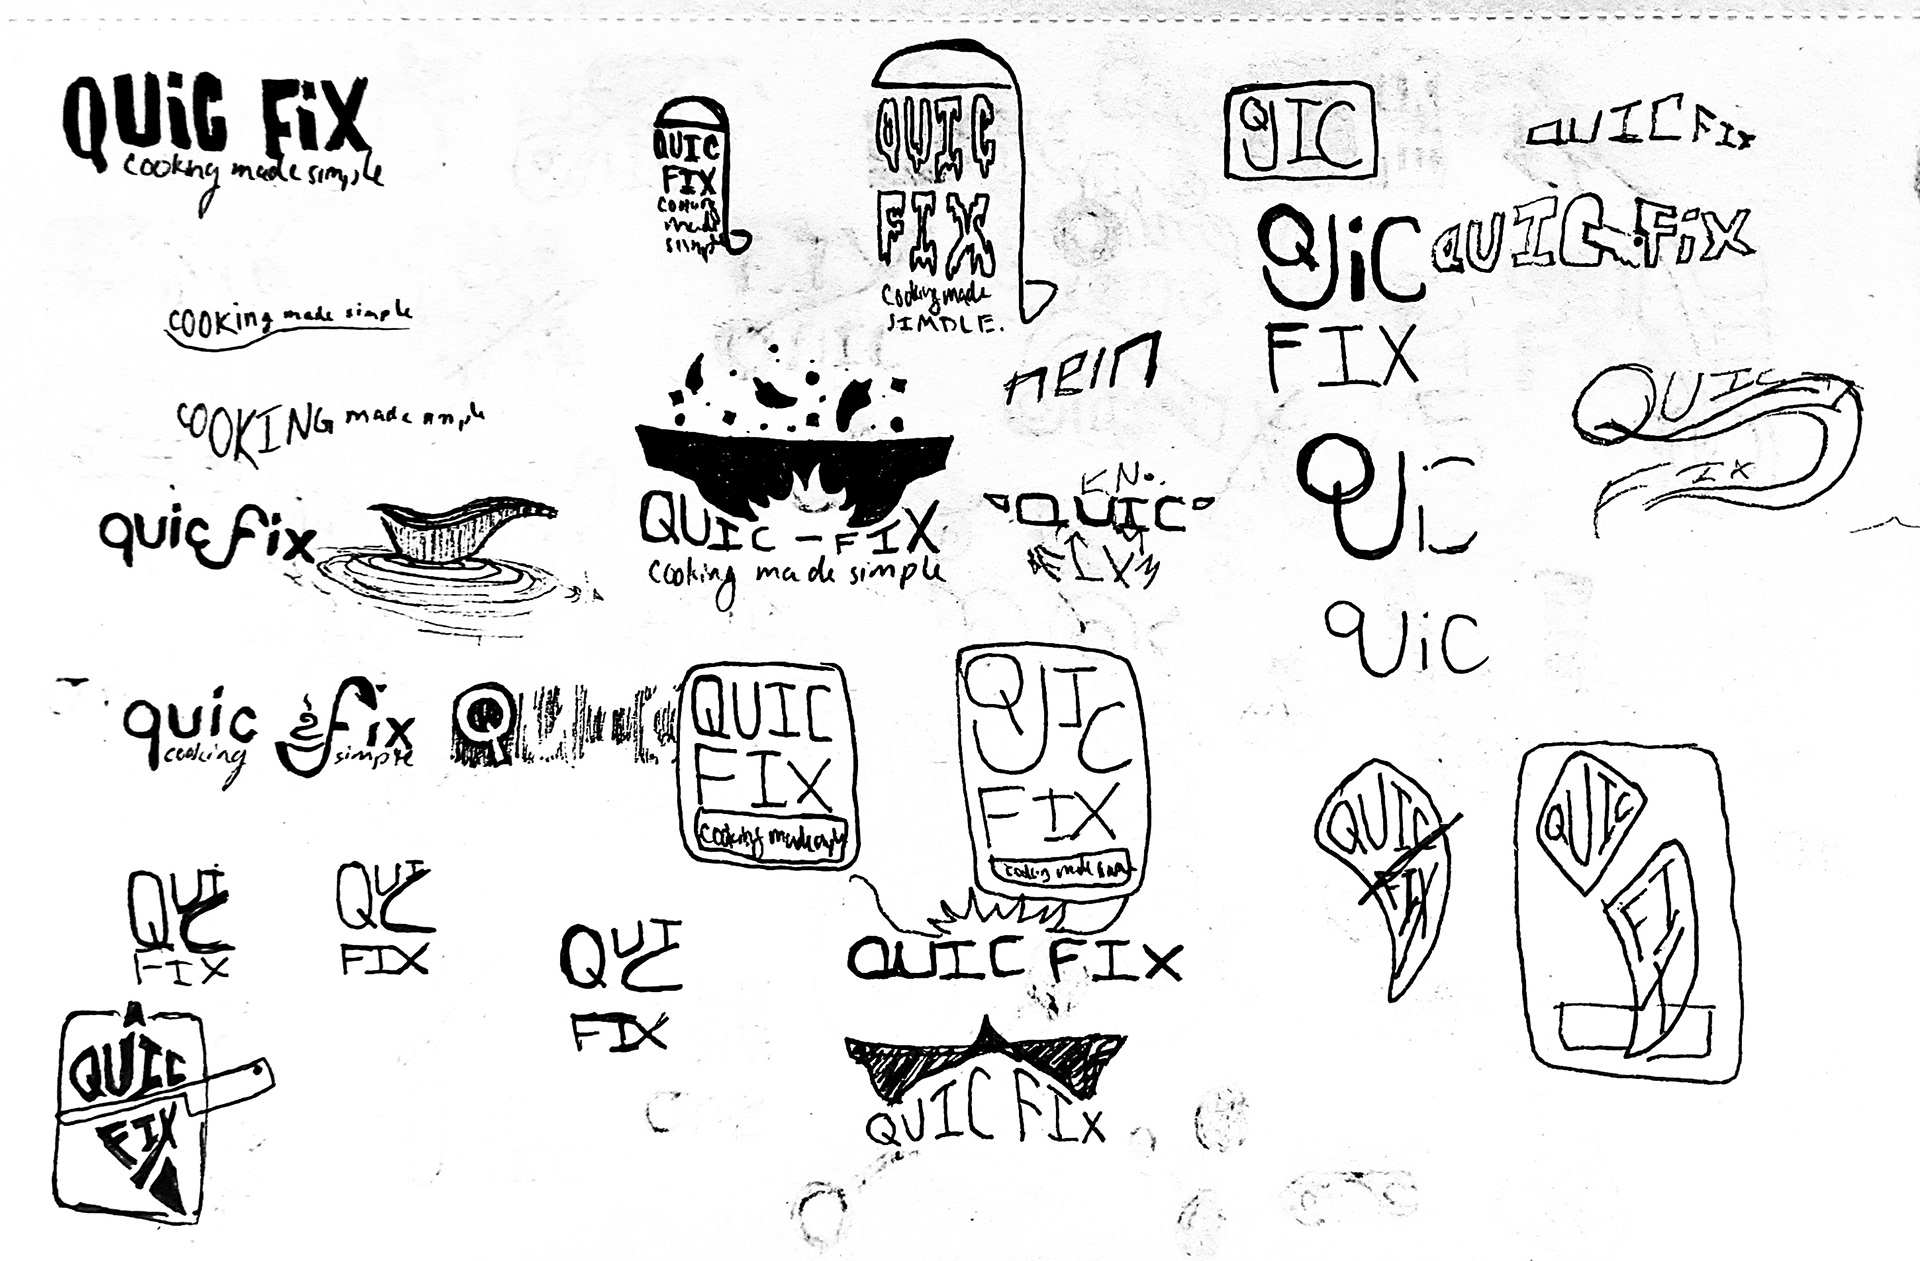 QUiC FiX
cooking made simple
QUIC
FIX
cooking
made
simple
QUIC
FIX
Cooking made
SIMPLE.
QUIC
QUIC FIX
QUiC
QUIC-FiX
FIX
COOKing made simple
nein
QUIC
FIX
COOKING made simple
QUIC
quic fix
QUIC - FIX
cooking made simple
QUIC
FIX
QUiC
quic fix
cooking simple
QUIC
FIX
cooking made simple
QUIC
FIX
cooking made
QUIC
FIX
QUIC
FIX
QUIC
FIX
QUIC
FIX
QUIC
FIX
QUIC FIX
QUIC
FIX
QUIC FIX